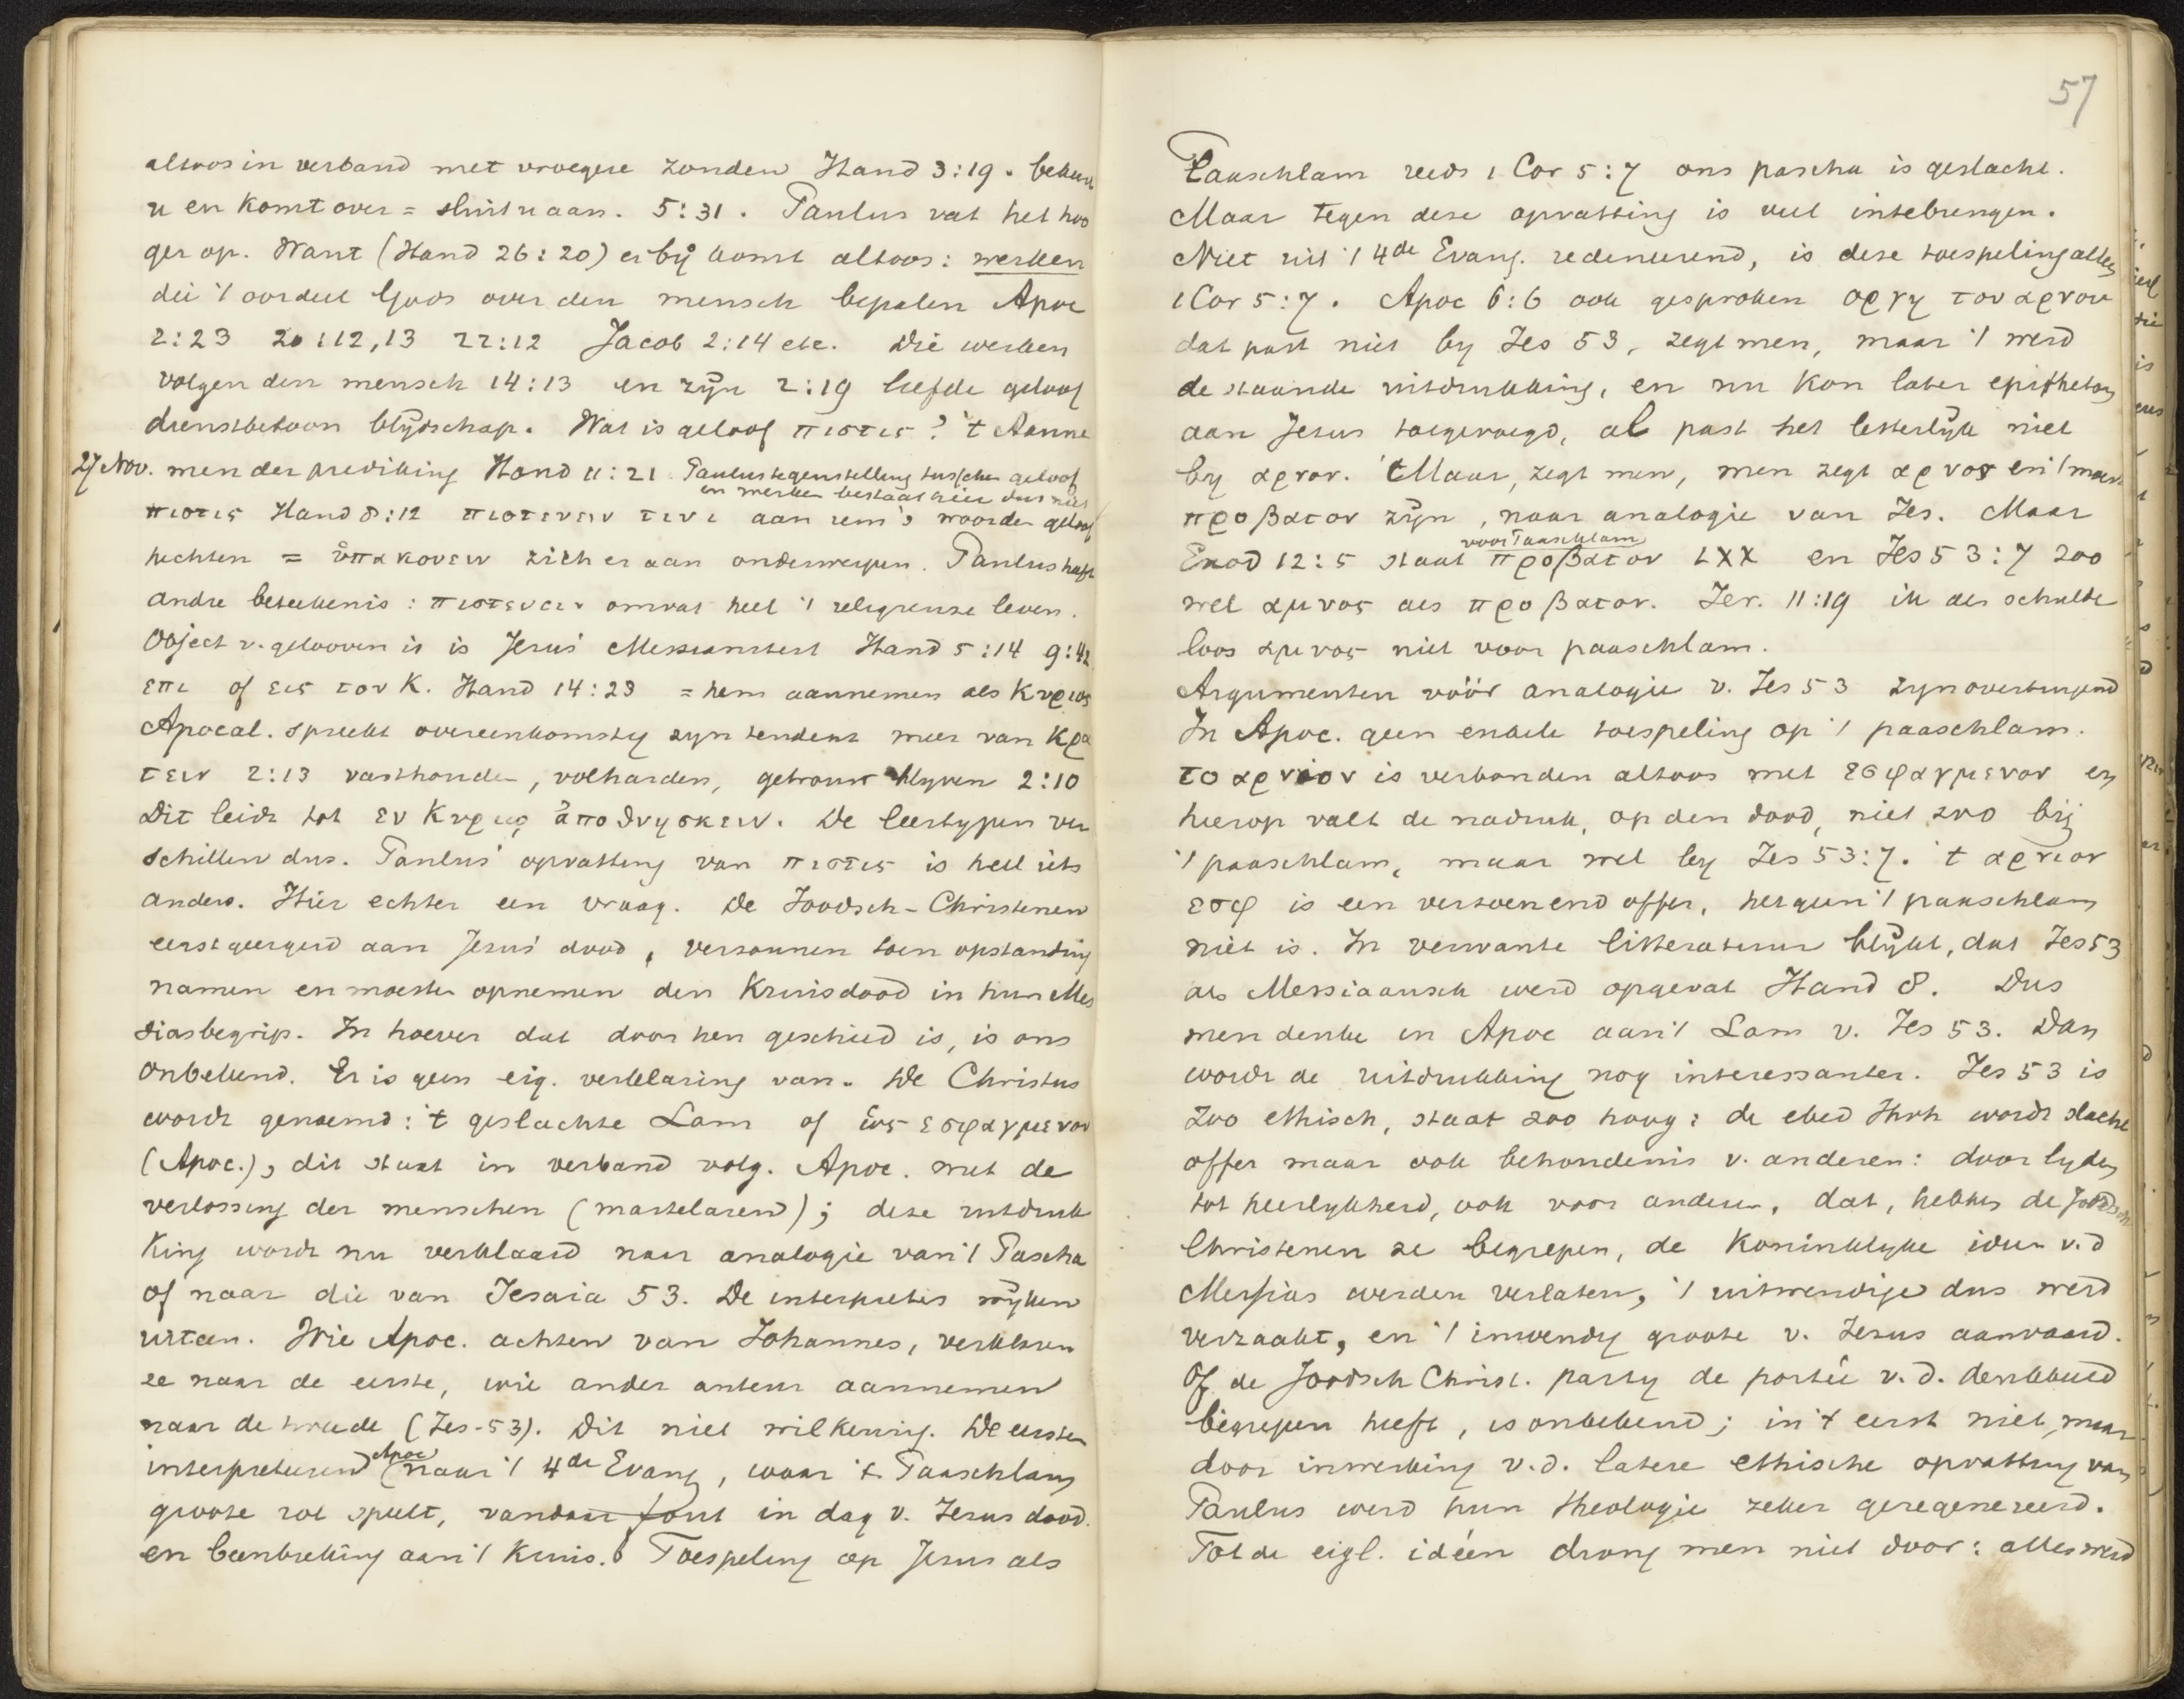 altoos in verband met vroegere zonden Hand 3:19. bekeert
u en komt over = sluit u aan. 5:31. Paulus vat het hoo
ger op. Want (Hand 26:20) er bij komt altoos: werken
die 't oordeel Gods over den mensch bepalen Apoc
2:23 20:12,13 22:12 Jacob 2:14 etc. Die werken
volgen den mensch 14:13 en zijn 2:19 liefde geloof
dienstbetoon blijdschap. Wat is geloof πιστις? 't Aanne
27 Nov. men der prediking Hand 11:21 Paulus tegenstelling tusschen geloof
en werken bestaat hier dus niet
πιστις Hand 8:12 πιστευειν τινι aan iem's woorden geloof
hechten = ὑπακουειν zich er aan onderwerpen. Paulus heeft
andre beteekenis: πιστευειν omvat heel 't religieuze leven.
Object v. gelooven is is Jesus' Messianiteit Hand 5:14 9:42
επι of εις τον Κ. Hand 14:23 = hem aannemen als Κυριος
Apocal. spreekt overeenkomstig zyn tendenz meer van κρα
τειν 2:13 vasthouden, volharden, getrouw blyven 2:10
Dit leidt tot εν Κυριῳ ἀποθνησκειν. De leertypen ver
schillen dus. Paulus' opvatting van πιστις is heel iets
anders. Hier echter een vraag. De Joodsch-Christenen
eerst geergerd aan Jesus' dood, verzonnen toen opstanding
namen en moesten opnemen den Kruisdood in hun Mes
siasbegrip. In hoever dat door hen geschied is, is ons
onbekend. Er is geen eig. verklaring van. De Christus
wordt genoemd: 't geslachte Lam of ὡς εσφαγμενον
(Apoc.), dit staat in verband volg. Apoc. met de
verlossing der menschen (martelaren); deze uitdruk
king wordt nu verklaard naar analogie van 't Pascha
of naar die van Jesaia 53. De interpretes wijken
uiteen. Wie Apoc. achten van Johannes, verklaren
ze naar de eerste, wie ander auteur aannemen
naar de tweede (Jes-53). Dit niet willkeurig. De eersten
interpreteeren Apoc naar 't 4de Evang, waar 't Paaschlam
groote rol speelt, vandaar fout in dag v. Jezus dood.
en beenbreking aan 't kruis. Toespeling op Jesus als
57
Paaschlam reeds 1 Cor 5:7 ons pascha is geslacht.
Maar tegen deze opvatting is veel intebrengen.
Niet uit 't 4de Evang. redeneerend, is deze toespeling alleen
1 Cor 5:7. Apoc 6:6 ook gesproken οργη του αρνου
dat past niet by Jes 53, zegt men, maar 't werd
de staande uitdrukking, en nu kon later epitheton
aan Jesus toegevoegd, al past het letterlijk niet
by αρνον. Maar, zegt men, men zegt αρνος en 't moest
προβατον zijn, naar analogie van Jes. Maar
voor Paaschlam
Exod 12:5 staat προβατον LXX en Jes 53:7 zoo
wel αμνος als προβατον. Jer. 11:19 ik als schulde
loos αμνος niet voor paaschlam.
Argumenten vóór analogie v. Jes 53 zyn overtuigend
In Apoc. geen enkele toespeling op 't paaschlam.
το αρνιον is verbonden altoos met εσφαγμενον en
hierop valt de nadruk, op den dood, niet zoo bij
't paaschlam, maar wel by Jes 53:7. 't αρνιον
εσφ is een verzoenend offer, hetgeen 't paaschlam
niet is. In verwante litteratuur blijkt, dat Jes 53
als Messiaansch werd opgevat Hand 8. Dus
men denke in Apoc aan 't Lam v. Jes 53. Dan
wordt de uitdrukking nog interessanter. Jes 53 is
zoo ethisch, staat zoo hoog: de ebed Jhvh wordt slacht
offer maar ook behoudenis v. anderen: door lyden
tot heerlykheid, ook voor anderen, dat, hebben de Joodsch
Christenen ze begrepen, de koninklyke ideën v.d
Messias werden verlaten, 't uitwendige dus werd
verzaakt, en 't inwendig groote v. Jezus aanvaard.
Of de Joodsch Christ. party de portée v.d. denkbeeld
begrepen heeft, is onbekend; in 't eerst niet, maar
door inwerking v.d. latere ethische opvatting van
Paulus werd hun theologie zeker geregenereerd.
Tot de eigl. ideën drong men niet door: alles werd